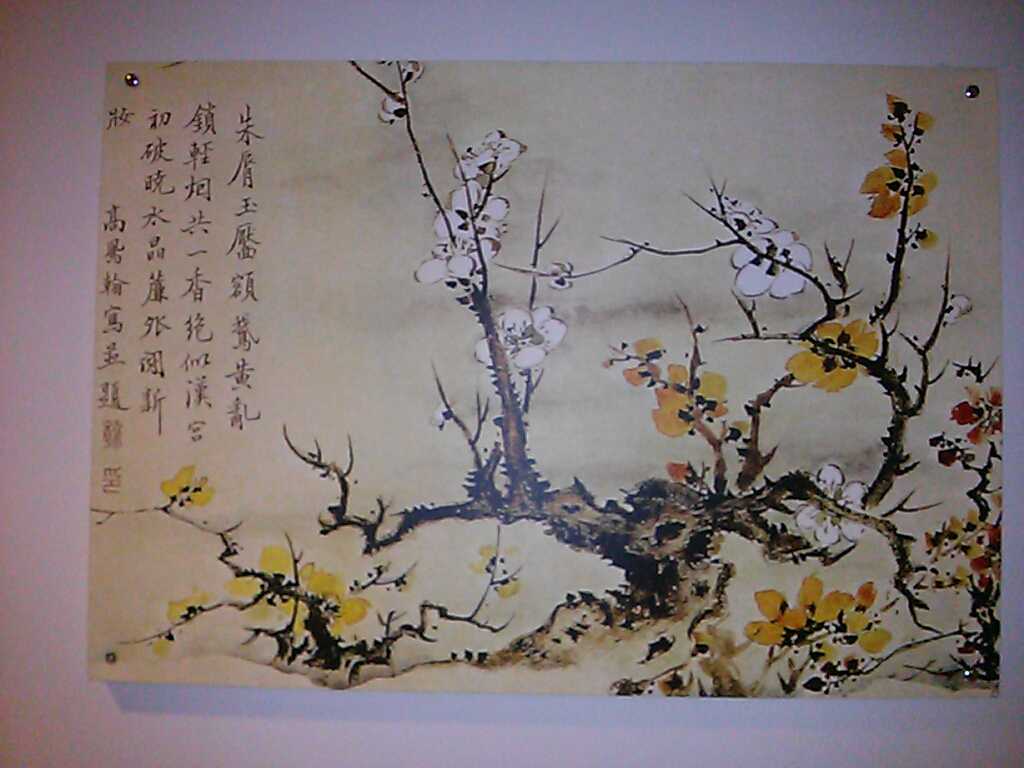 朱脣玉靨額鵞黄亂
鎖輕烟共一香絶似漢宮
初破曉水晶簾外鬬新
妝
高鳳翰寫並題